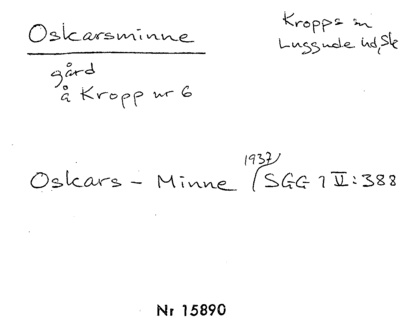 Oskarsminne
Kropps sn
Luggude hd, Sk
gård
å Kropp nr 6
Oskars - Minne 1937/ SGG 1 V:388
Nr 15890